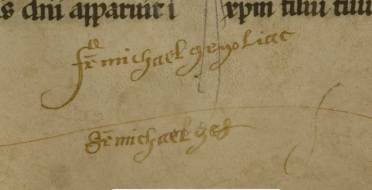 s dni apparuit i xpm filiu tuu
fr michael geyoliac
fr michael ges